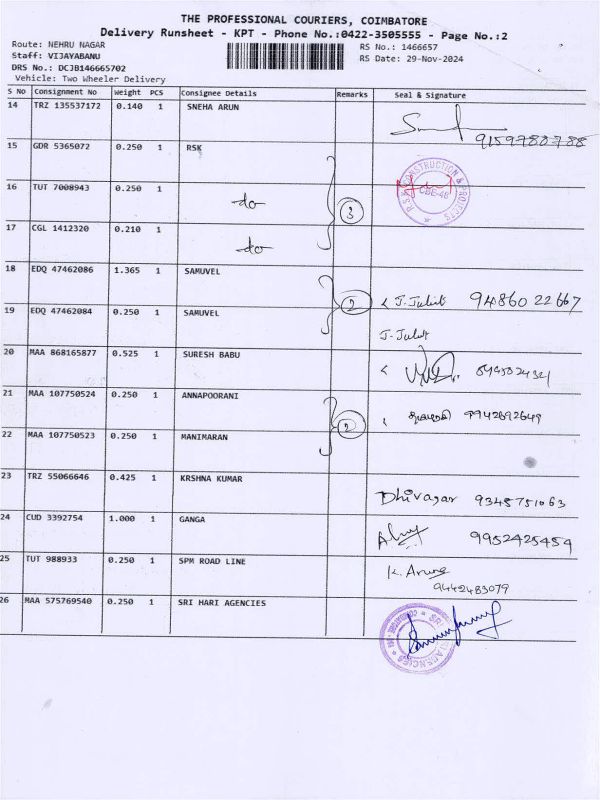 THE PROFESSIONAL COURIERS, COIMBATORE
Delivery Runsheet - KPT - Phone No.:0422-3505555 - Page No.:2
Route: NEHRU NAGAR
RS No.: 1466657
Staff: VIJAYABANU
RS Date: 29-Nov-2024
DRS No.: DCJB146665702
Vehicle: Two Wheeler Delivery
S No Consignment No Weight PCS Consignee Details Remarks Seal & Signature
14 TRZ 135537172 0.140 1 SNEHA ARUN
9159788788
15 GDR 5365072 0.250 1 RSK
R S K CONSTRUCTION & PROJECTS
CBE-46
16 TUT 7008943 0.250 1 do 3
17 CGL 1412320 0.210 1 do
18 EDQ 47462086 1.365 1 SAMUVEL 2 J. Juliet 9486022667
19 EDQ 47462084 0.250 1 SAMUVEL J. Juliet
20 MAA 868165877 0.525 1 SURESH BABU
21 MAA 107750524 0.250 1 ANNAPOORANI 2 9942692649
22 MAA 107750523 0.250 1 MANIMARAN
23 TRZ 55066646 0.425 1 KRSHNA KUMAR Dhivagar 9345751063
24 CUD 3392754 1.000 1 GANGA 9952425454
25 TUT 988933 0.250 1 SPM ROAD LINE K. Aruna
9442483079
26 MAA 575769540 0.250 1 SRI HARI AGENCIES